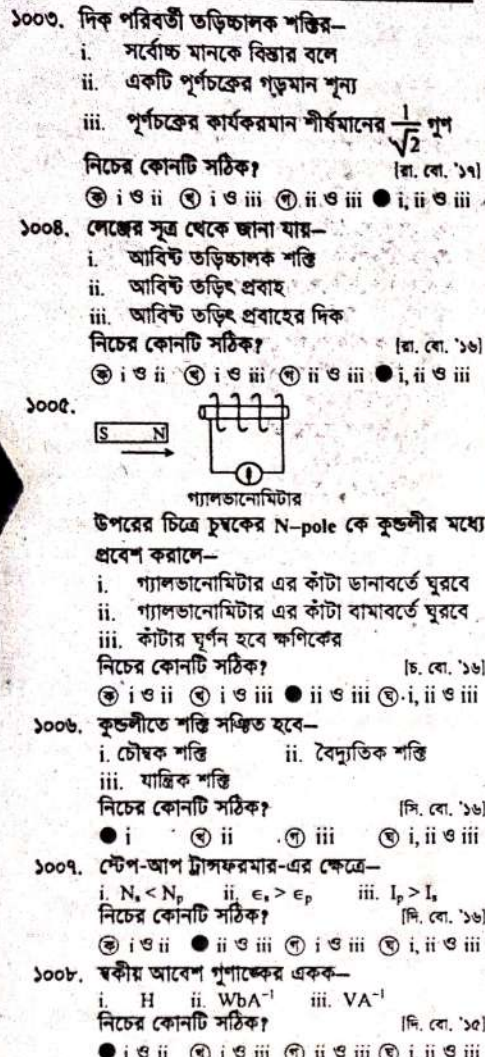 ১০০৩. দিক পরিবর্তী তড়িচ্চালক শক্তির–
i. সর্বোচ্চ মানকে বিস্তার বলে
ii. একটি পূর্ণচক্রের গড়মান শূন্য
iii. পূর্ণচক্রের কার্যকরমান শীর্ষমানের 1/√2 গুণ
নিচের কোনটি সঠিক? [রা. বো. '১৭]
ⓚ i ও ii ⓛ i ও iii ⓖ ii ও iii ● i, ii ও iii
১০০৪. লেঞ্জের সূত্র থেকে জানা যায়–
i. আবিষ্ট তড়িচ্চালক শক্তি
ii. আবিষ্ট তড়িৎ প্রবাহ
iii. আবিষ্ট তড়িৎ প্রবাহের দিক
নিচের কোনটি সঠিক? [রা. বো. '১৬]
(ক) i ও ii (খ) i ও iii (গ) ii ও iii ● i, ii ও iii
১০০৫.
S N
গ্যালভানোমিটার
উপরের চিত্রে চুম্বকের N–pole কে কুন্ডলীর মধ্যে
প্রবেশ করালে–
i. গ্যালভানোমিটার এর কাঁটা ডানাবর্তে ঘুরবে
ii. গ্যালভানোমিটার এর কাঁটা বামাবর্তে ঘুরবে
iii. কাঁটার ঘূর্ণন হবে ক্ষণিকের
নিচের কোনটি সঠিক? [চ. বো. '১৬]
(ক) i ও ii (খ) i ও iii ● ii ও iii (ঘ) i, ii ও iii
১০০৬. কুন্ডলীতে শক্তি সঞ্চিত হবে–
i. চৌম্বক শক্তি ii. বৈদ্যুতিক শক্তি
iii. যান্ত্রিক শক্তি
নিচের কোনটি সঠিক? [সি. বো. '১৬]
● i (খ) ii (গ) iii (ঘ) i, ii ও iii
১০০৭. স্টেপ-আপ ট্রান্সফরমার-এর ক্ষেত্রে–
i. Nₛ < Nₚ ii. ϵₛ > ϵₚ iii. Iₚ > Iₛ
নিচের কোনটি সঠিক? [দি. বো. '১৬]
(ক) i ও ii ● ii ও iii (গ) i ও iii (ঘ) i, ii ও iii
১০০৮. স্বকীয় আবেশ গুণাঙ্কের একক–
i. H ii. WbA⁻¹ iii. VA⁻¹
নিচের কোনটি সঠিক? [দি. বো. '১৫]
● i ও ii (খ) i ও iii (গ) ii ও iii (ঘ) i, ii ও iii